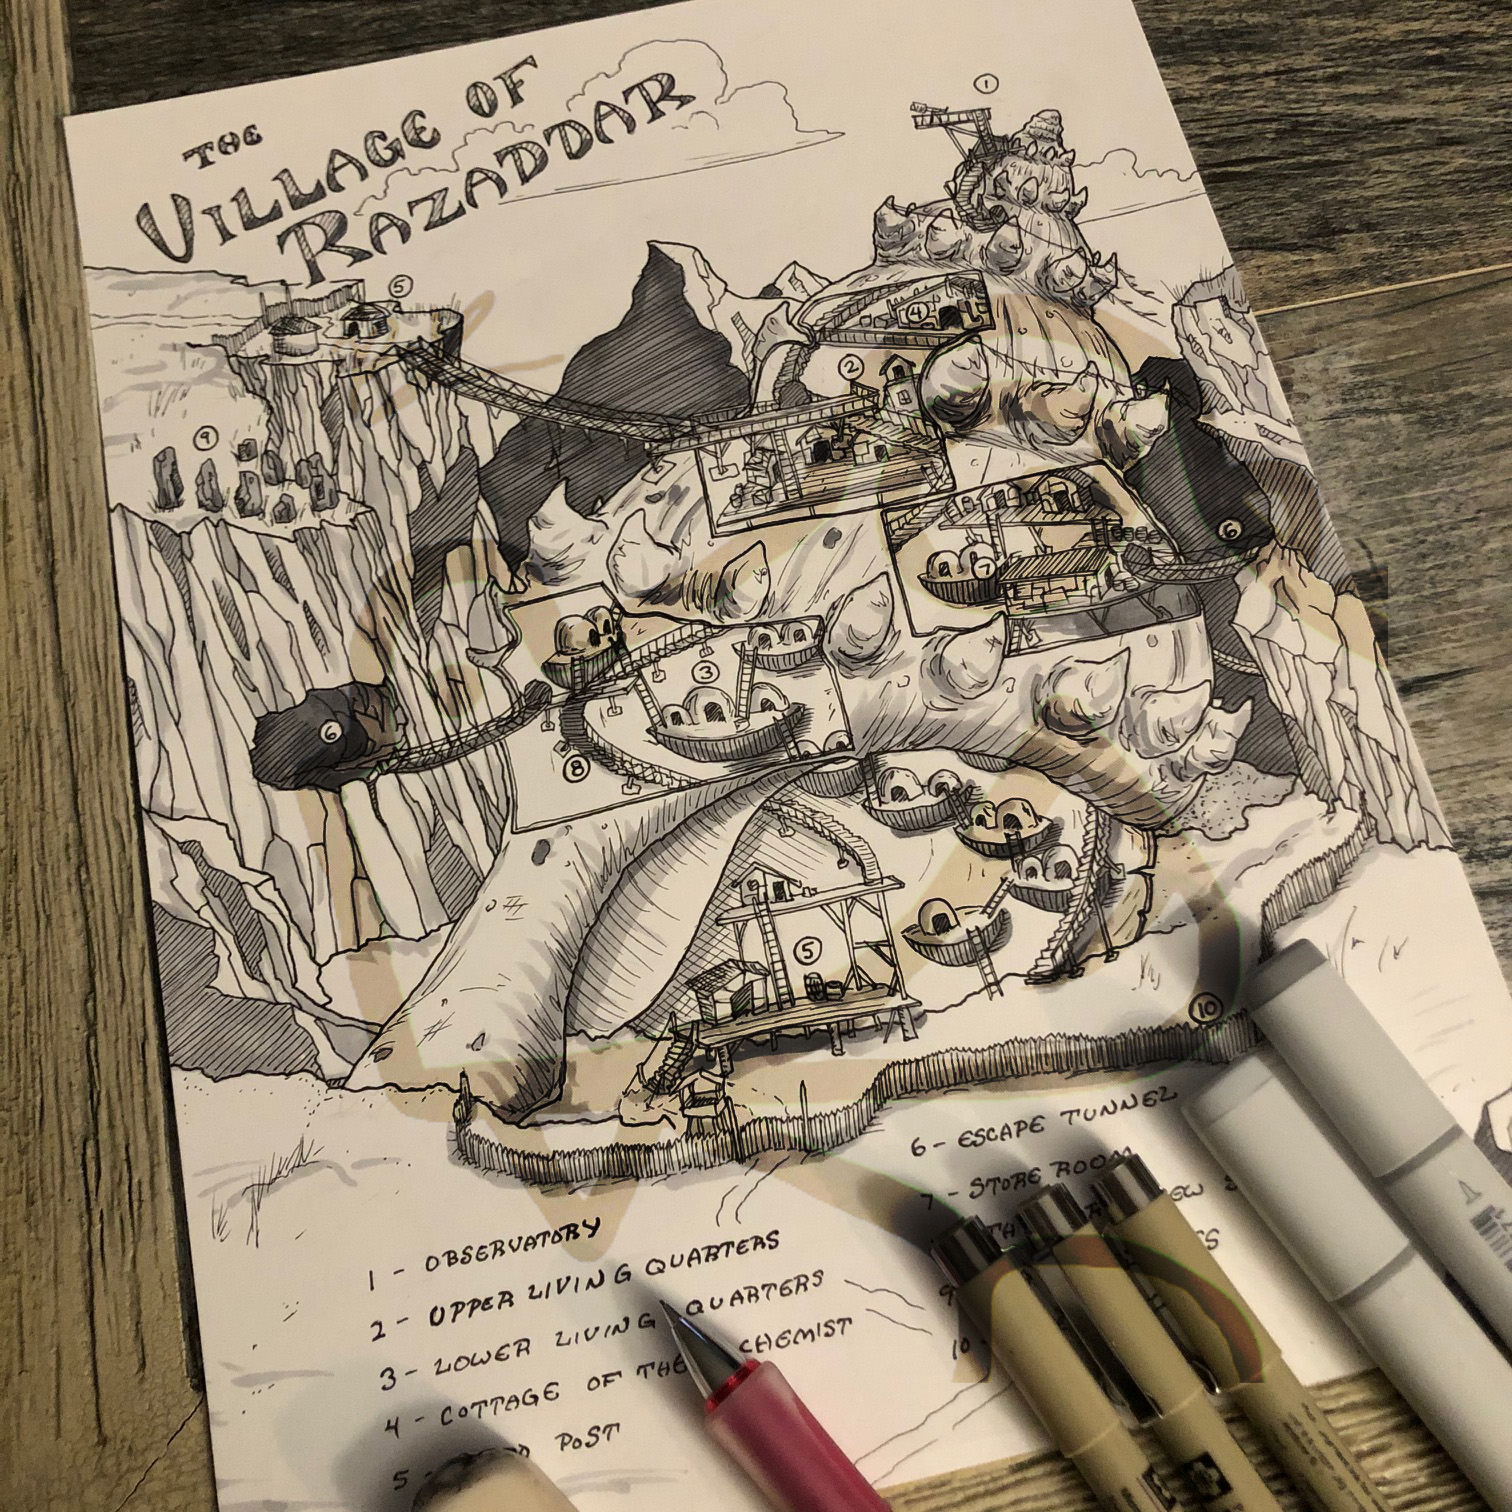 THE
VILLAGE OF
RAZADDAR
1
5
4
2
9
6
7
3
6
8
5
10
1 - OBSERVATORY
2 - UPPER LIVING QUARTERS
3 - LOWER LIVING QUARTERS
4 - COTTAGE OF THE CHEMIST
5 - POST
6 - ESCAPE TUNNEL
7 - STORE ROOM
10